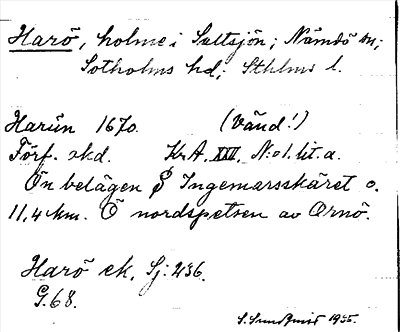 Harö, holme i Saltsjön; Nämdö sn;
Sotholms hd; Sthlms l.
Harün 1670. (Vänd!)
Förf. okd. KrA. XXI, N:o 1. lit. a.
Ön belägen S Ingemarsskäret o.
11,4 km. Ö nordspetsen av Ornö.
Harö ek. Sj: 236.
G. 68.
S. Sundqvist 1935.